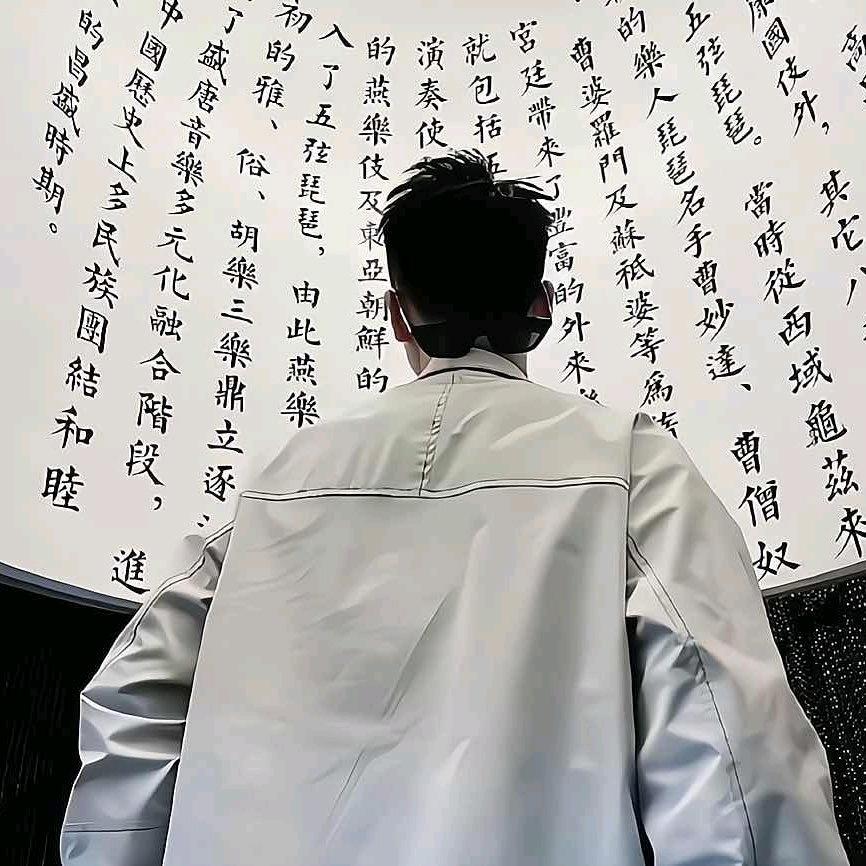 高
其它八
康國伎外，
當時從西域龜茲來
五弦琵琶。
曹僧奴
的樂人琵琶名手曹妙達、
曹婆羅門及蘇祗婆等爲
宮廷帶來了豐富的外來
就包括五
演奏使
的燕樂伎及東亞朝鮮的
入了五弦琵琶，由此燕樂
初的雅、俗、胡樂三樂鼎立逐
進
了盛唐音樂多元化融合階段，
中國歷史上多民族團結和睦
的昌盛時期。